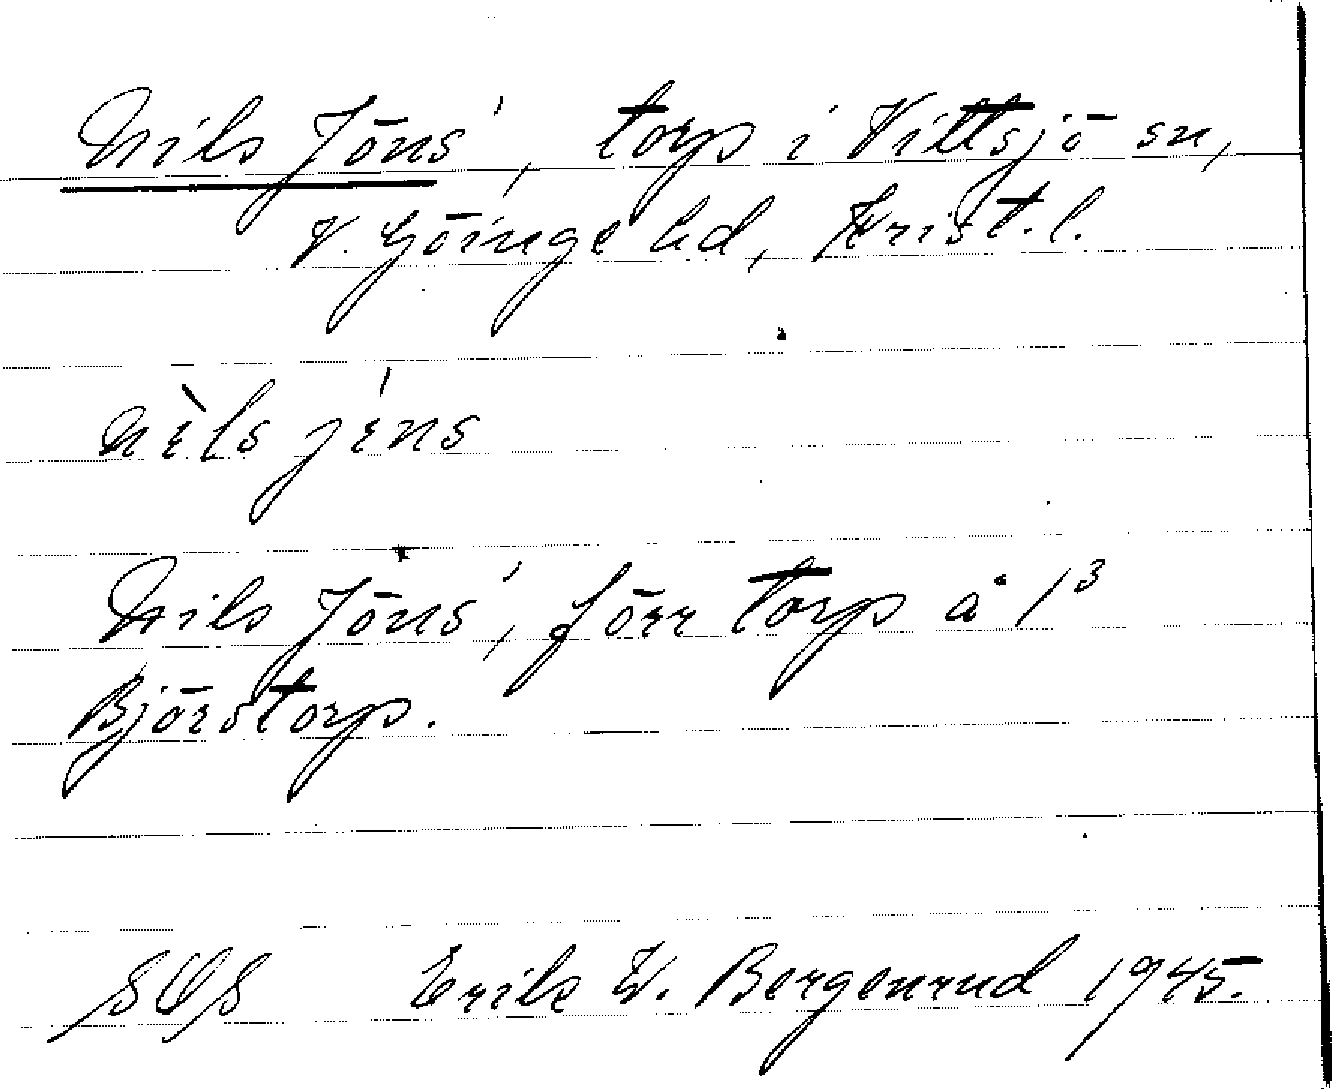 Nils Jöns', torp i Vittsjö sn,
V. Göinge hd, Krist. l.
nèls jéns
Nils Jöns', förr torp å 1³
Björstorp.
SOS Erik W. Bergenrud 1945.